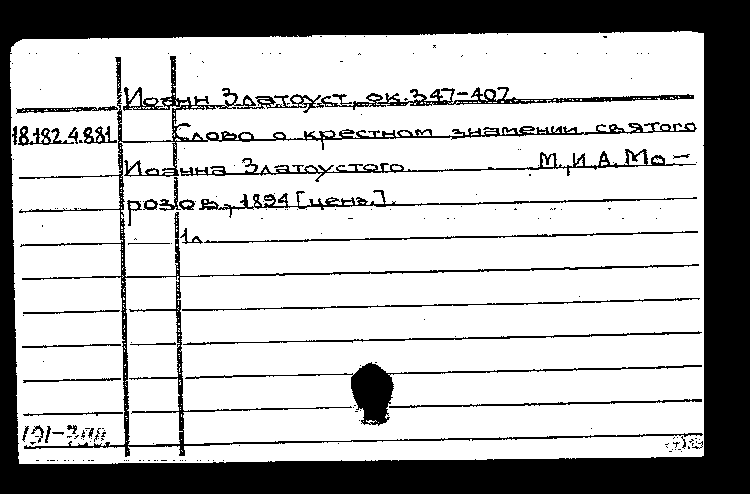 Иоанн Златоуст, ок. 347-407.
18.182.4.881 Слово о крестном знамении святого
Иоанна Златоустого. М., И.А. Мо-
розов, 1894 [ценз.].
1 л.